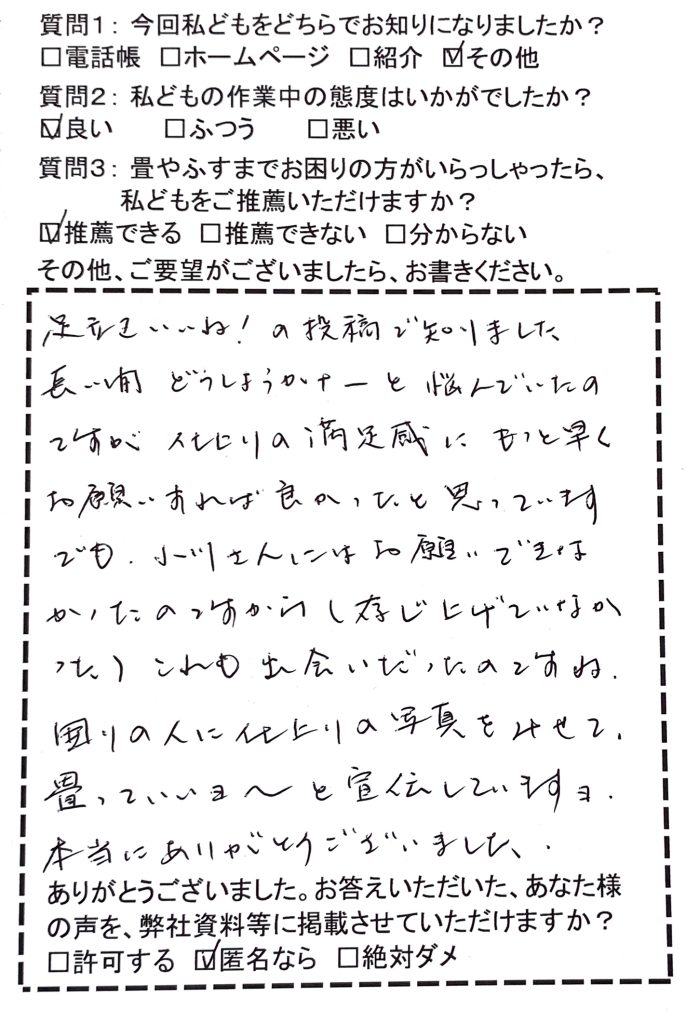 質問1：今回私どもをどちらでお知りになりましたか？
□電話帳 □ホームページ □紹介 ☑その他
質問2：私どもの作業中の態度はいかがでしたか？
☑良い □ふつう □悪い
質問3：畳やふすまでお困りの方がいらっしゃったら、
私どもをご推薦いただけますか？
☑推薦できる □推薦できない □分からない
その他、ご要望がございましたら、お書きください。
足立区いいね！の投稿で知りました
長い間 どうしようかナーと悩んでいたの
ですが 仕上りの満足感に もっと早く
お願いすれば良かったと思っています
でも、小川さんにはお願いできな
かったのですから（存じ上げていなか
った）これも出会いだったのですね.
周りの人に仕上りの写真をみせて、
畳っていいヨ〜と宣伝していますョ.
本当にありがとうございました、.
ありがとうございました。お答えいただいた、あなた様
の声を、弊社資料等に掲載させていただけますか？
□許可する ☑匿名なら □絶対ダメ